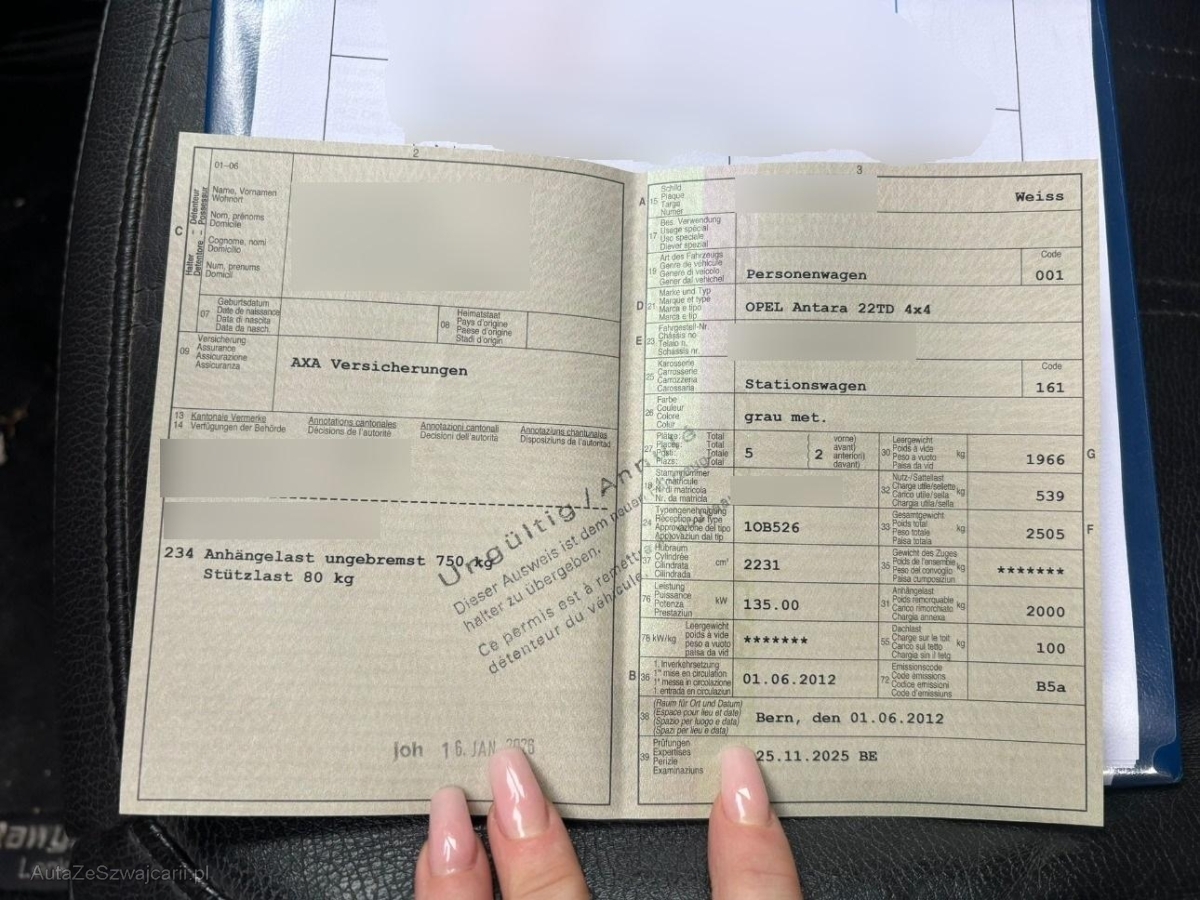 2
01-06
C
Halter Détenteur
Detentore Possessur
Name, Vornamen
Wohnort
Nom, prénoms
Domicile
Cognome, nomi
Domicilio
Num, prenums
Domicil
07
Geburtsdatum
Date de naissance
Data di nascita
Data da nasch.
08
Heimatstaat
Pays d'origine
Paese d'origine
Stadi d'origin
09
Versicherung
Assurance
Assicurazione
Assicuranza
AXA Versicherungen
13 Kantonale Vermerke Annotations cantonales Annotazioni cantonali Annotaziuns chantunalas
14 Verfügungen der Behörde Décisions de l'autorité Decisioni dell'autorità Disposiziuns da l'autoritad
234 Anhängelast ungebremst 750 kg
Stützlast 80 kg
Ungültig / Annulé
Dieser Ausweis ist dem neuen
halter zu übergeben.
Ce permis est à remettre
détenteur du véhicule
joh 16. JAN. 2026
3
A 15
Schild
Plaque
Targa
Numer
Weiss
17
Bes. Verwendung
Usage spécial
Uso speciale
Diever spezial
19
Art des Fahrzeugs
Genre de véhicule
Genere di veicolo
Gener dal vehichel
Personenwagen
Code
001
D 21
Marke und Typ
Marque et type
Marca e tipo
Marca e tip
OPEL Antara 22TD 4x4
E 23
Fahrgestell-Nr.
Châssis no
Telaio n.
Schassis nr.
25
Karosserie
Carrosserie
Carrozzeria
Carossaria
Stationswagen
Code
161
26
Farbe
Couleur
Colore
Colur
grau met.
27
Plätze: Total
Places: Total
Posti: Totale
Plazs: Total
5
2
vorne)
avant)
anteriori)
davant)
30
Leergewicht
Poids à vide
Peso a vuoto
Paisa da vid
kg
1966
G
18
Stammnummer
N° matricule
N. di matricola
Nr. da matricla
32
Nutz-/Sattellast
Charge utile/sellette
Carico utile/sella
Chargia utila/sella
kg
539
24
Typengenehmigung
Réception par type
Approvazione del tipo
Approvaziun dal tip
1OB526
33
Gesamtgewicht
Poids total
Peso totale
Paisa totala
kg
2505
F
37
Hubraum
Cylindrée
Cilindrata
Cilindrada
cm³
2231
35
Gewicht des Zuges
Poids de l'ensemble
Peso del convoglio
Paisa cumposiziun
kg
*******
76
Leistung
Puissance
Potenza
Prestaziun
kW
135.00
31
Anhängelast
Poids remorquable
Carico rimorchiato
Chargia annexa
kg
2000
78 kW/kg
Leergewicht
poids à vide
peso a vuoto
paisa da vid
*******
55
Dachlast
Charge sur le toit
Carico sul tetto
Chargia sin il tetg
kg
100
B 36
1. Inverkehrsetzung
1re mise en circulation
1a messa in circolazione
1. entrada en circulaziun
01.06.2012
72
Emissionscode
Code émissions
Codice emissioni
Code d'emissiuns
B5a
38
(Raum für Ort und Datum)
(Espace pour lieu et date)
(Spazio per luogo e data)
(Spazi per lieu e data)
Bern, den 01.06.2012
39
Prüfungen
Expertises
Perizie
Examinaziuns
25.11.2025 BE
AutaZeSzwajcarii.pl